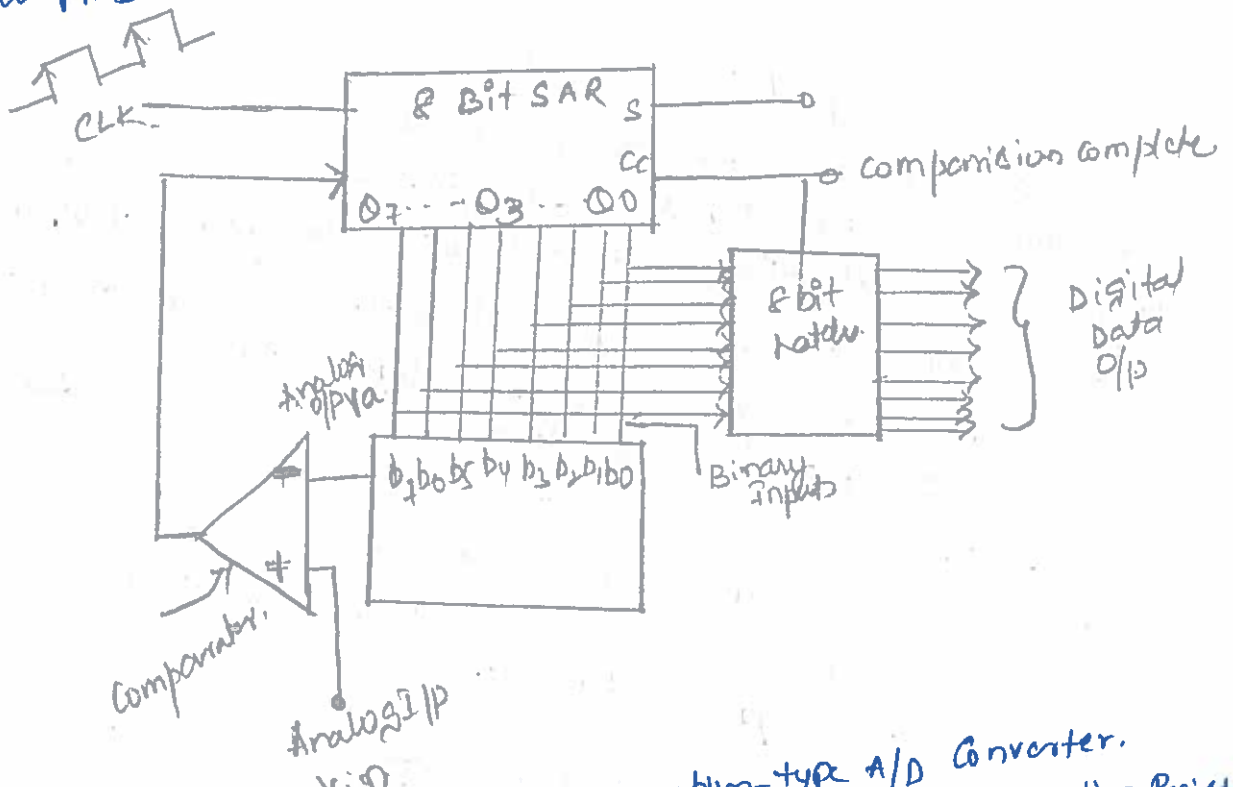 8 Bit SAR
S
CLK.
CC
comparision complete
Q7 --- Q3 -- Q0
8 bit
Digital
Data
O/p
Analog
b7 b6 b5 b4 b3 b2 b1 b0
Binary
Inputs
Comparator.
Analog I/p
type A/D Converter.